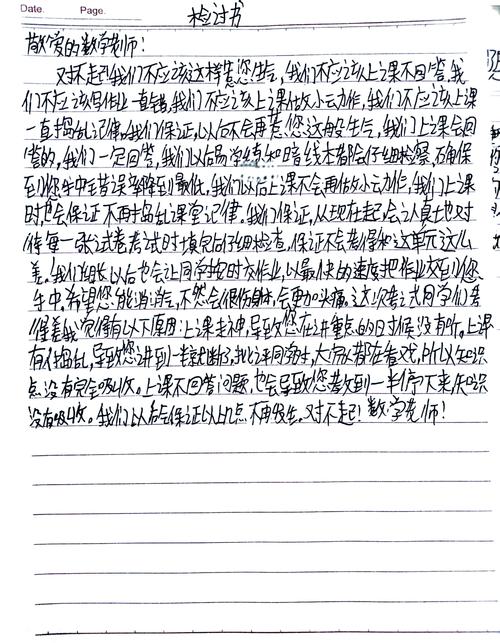 Date.        Page.
检讨书
敬爱的数学老师!
对不起!我们不应该这样惹您生气,我们不应该上课不回答,我
们不应该写作业一直错,我们不应该上课做小动作,我们不应该上课
一直捣乱记律。我们保证,以后不会再惹您这般生气,我们上课会回
答的,我们一定回答,我们以后易学练知暗线本都会仔细检察,确保
到您手中错误率降到最低。我们以后上课不会再做小动作,我们上课
时也会保证不再捣乱课堂记律。我们保证,从现在起会认真地对
待每一张试卷考试时填完仔细检查,保证不会考得和这单元这么
差。我们组长以后也会让同学按时交作业,以最快的速度把作业交到您
手中,希望您能消消气,不然会很伤身,会更加头痛。这次考试同学们考
得差我觉得有以下原因:上课走神,导致您在讲重点的时候没有听。上课
有人捣乱,导致您讲到一半就断,批评同学,大伙都在看戏,所以知识
点没有完全吸收。上课不回答问题,也会导致您教到一半停下来,知识
没有吸收。我们以后会保证以上几点不再发生。对不起!数学老师!